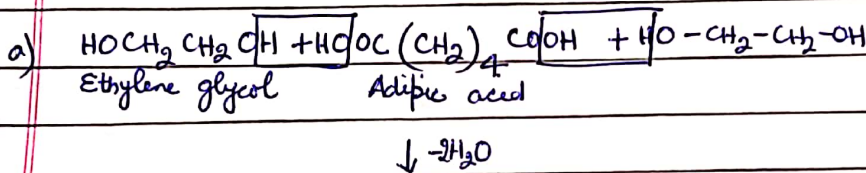 a) HOCH₂ CH₂ OH + HOOC (CH₂)₄ COOH + HO - CH₂ - CH₂ - OH
Ethylene glycol Adipic acid
↓ -2H₂O